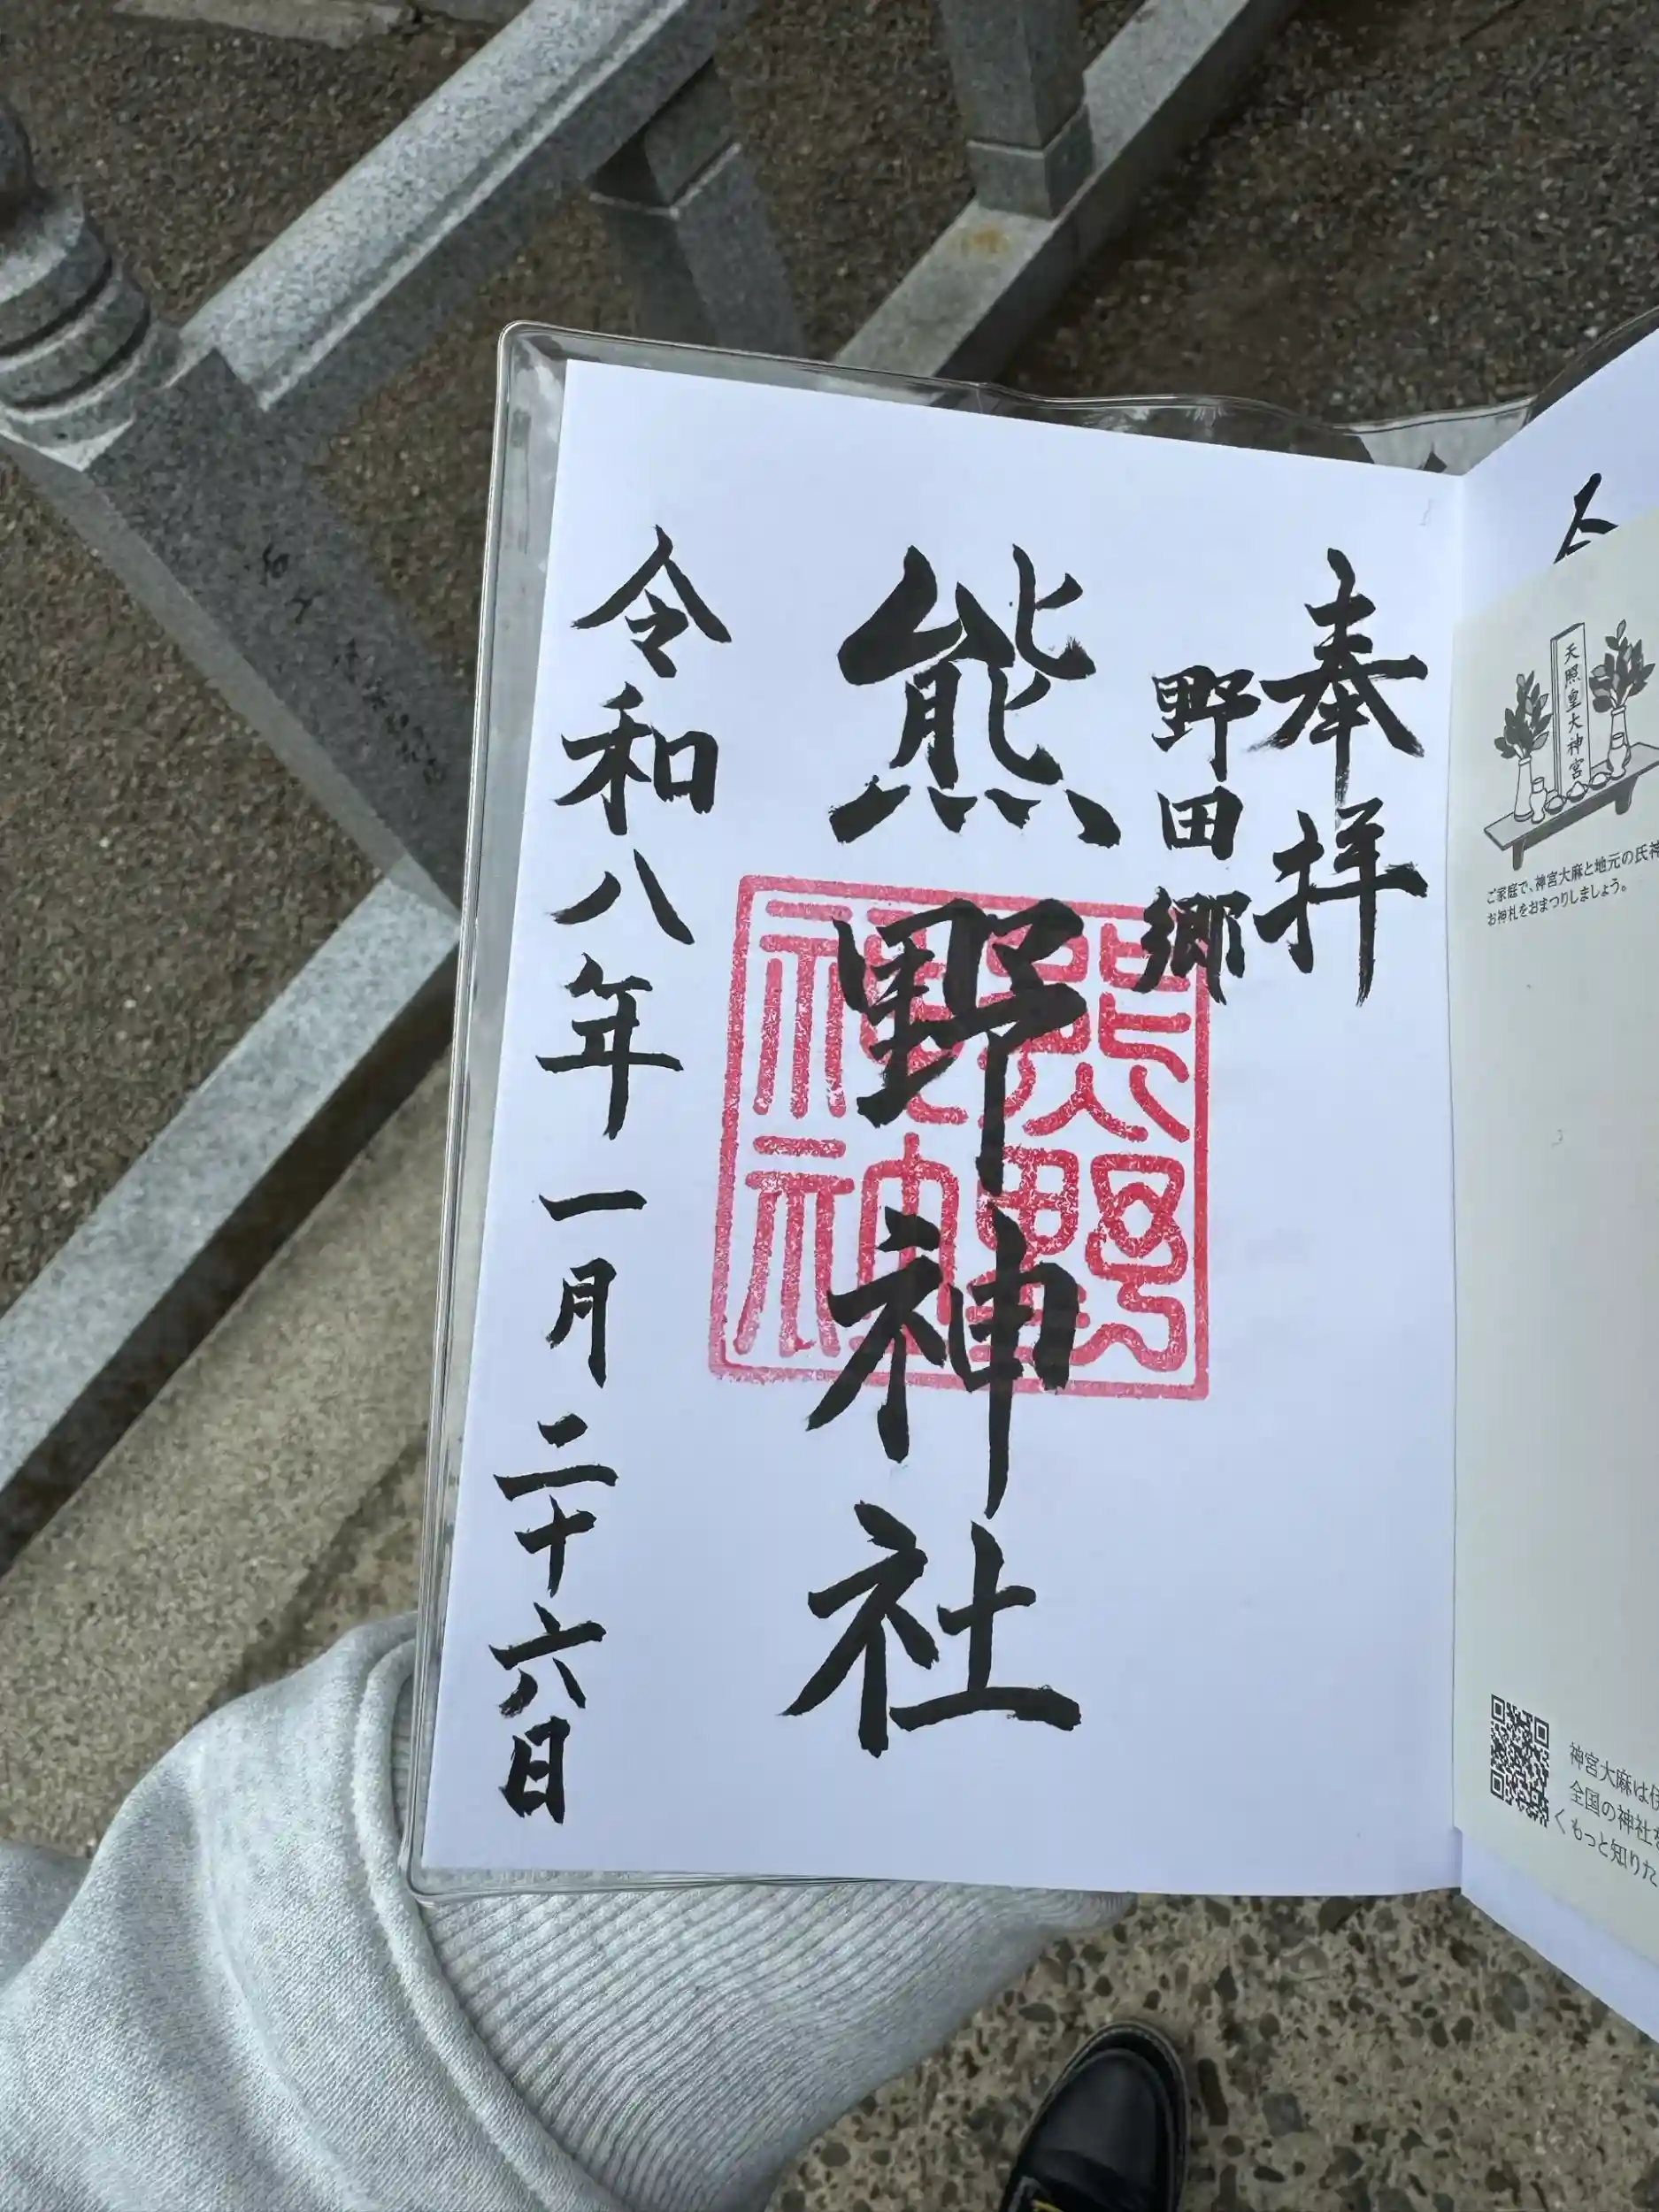 奉拝
野田郷
熊野神社
熊野神社
令和八年一月二十六日
天照皇大神宮
ご家庭で、神宮大麻と地元の氏神
お神札をおまつりしましょう。
神宮大麻は伊
全国の神社を
くもっと知りた